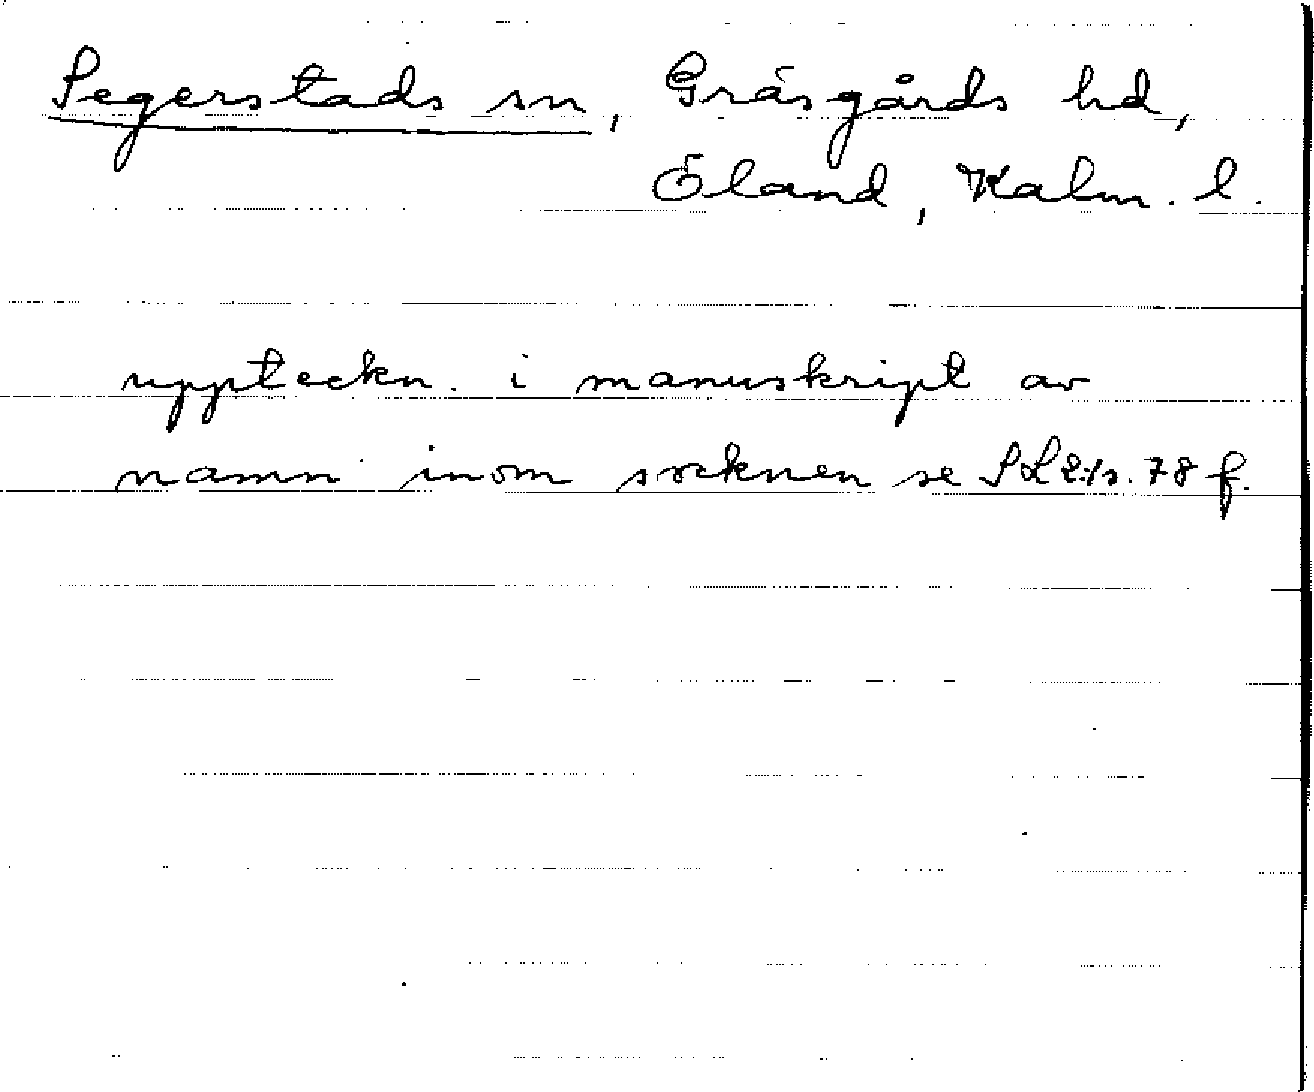 Segerstads sn, Gräsgårds hd,
Öland, Kalm. l.
uppteckn. i manuskript av
namn inom socknen se SL2:1s. 78 f.